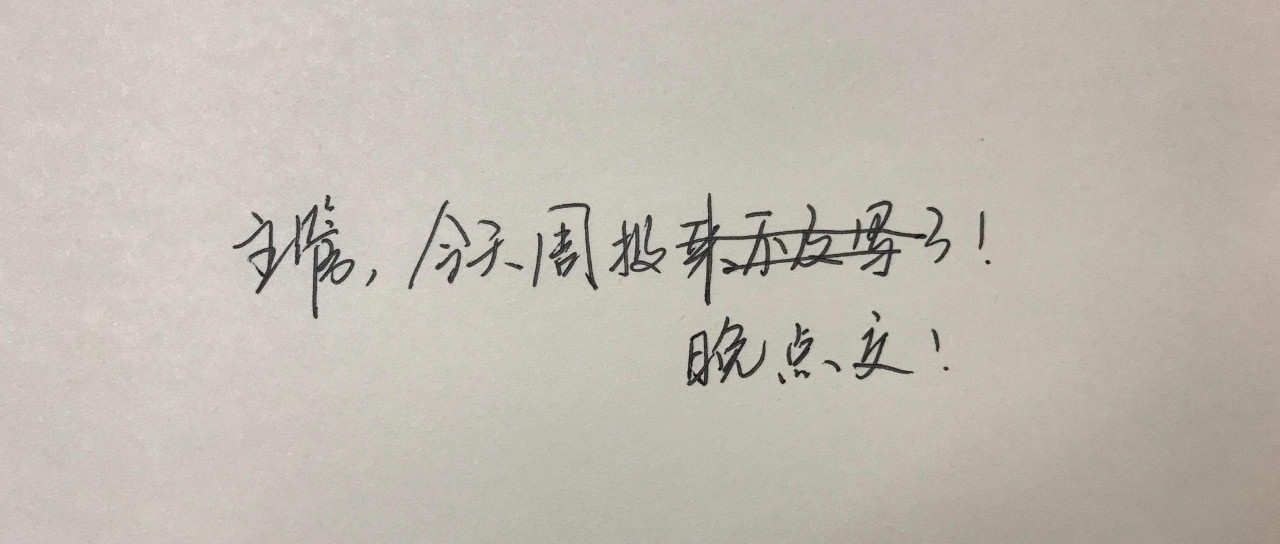 主席，今天周报来不及写了！
晚点交！